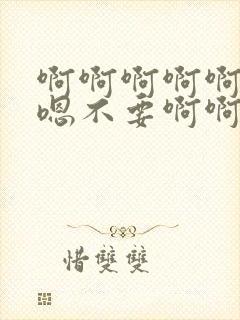 啊啊啊啊啊
嗯不要啊啊
惜雙雙